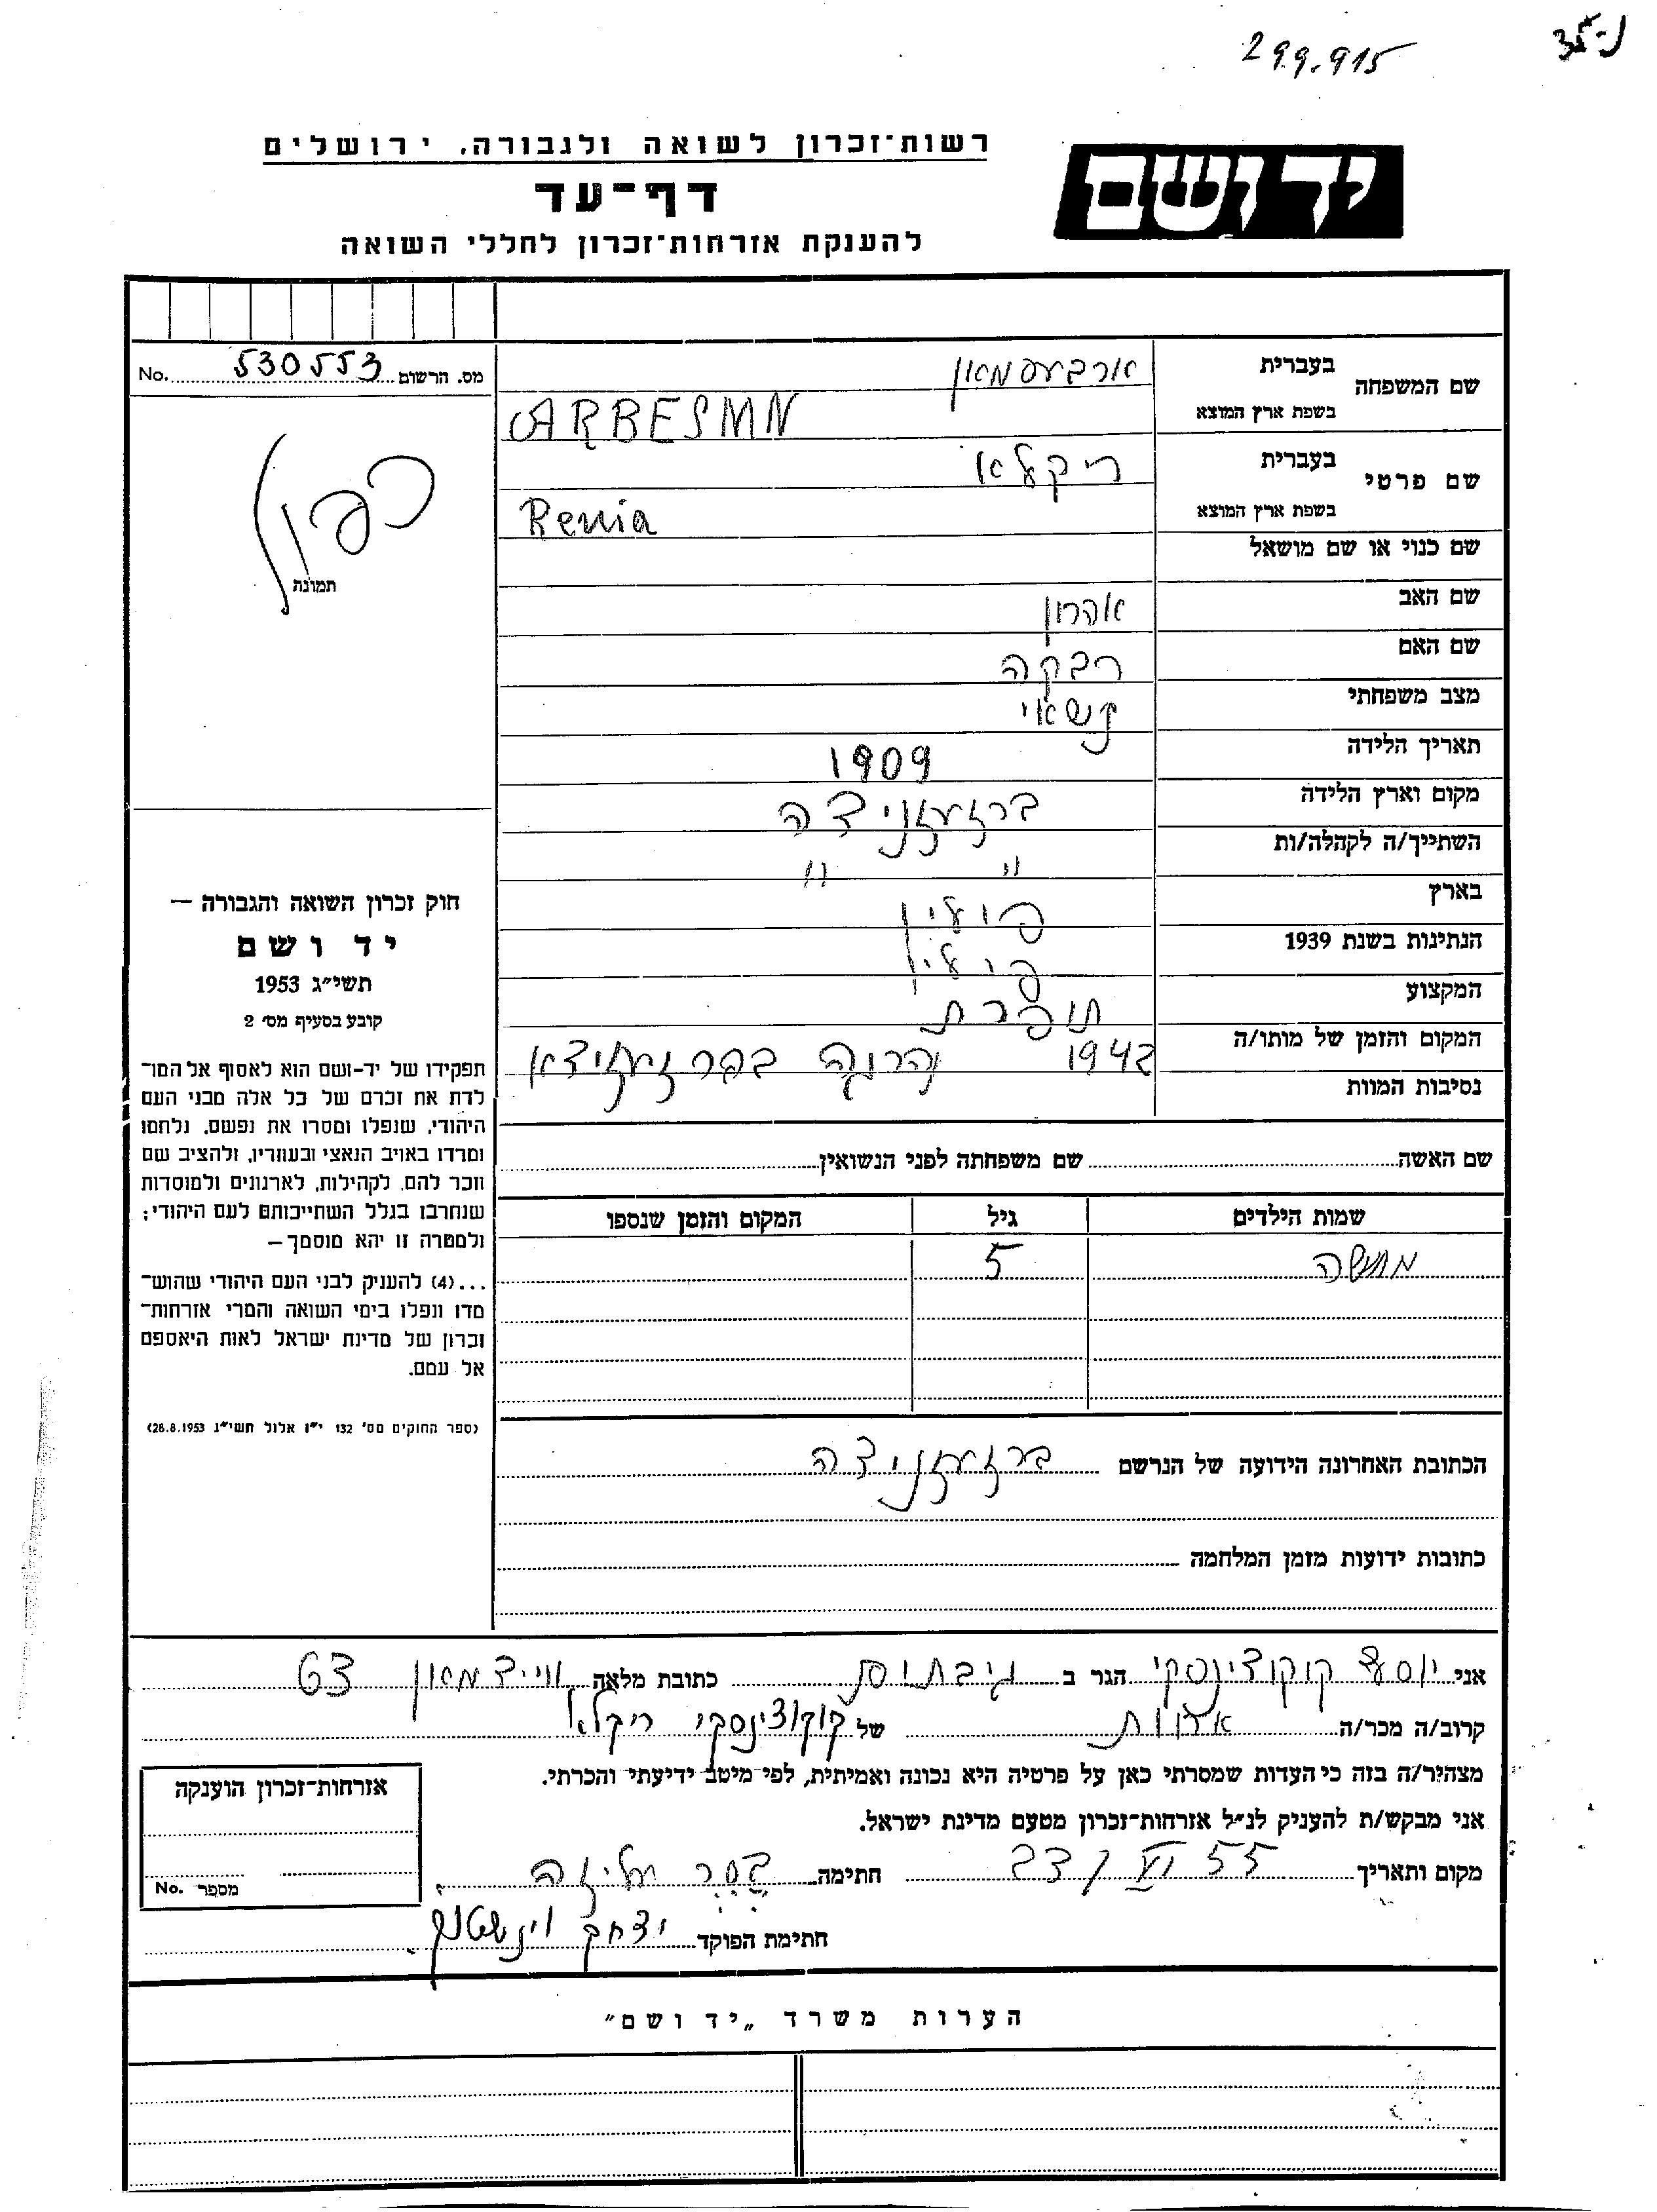 29.9.915
יד ושם
רשות־זכרון לשואה ולגבורה, ירושלים
דף־עד
להענקת אזרחות־זכרון לחללי השואה
מס. הרשום 530553 No.
שם המשפחה
בעברית ארבעסמאן
בשפת ארץ המוצא ARBESMN
שם פרטי
בעברית ריקלא
בשפת ארץ המוצא Renia
שם כנוי או שם מושאל
שם האב אהרון
שם האם רבקה
מצב משפחתי נשאוי
תאריך הלידה 1909
מקום וארץ הלידה ברזעזניצה
השתייך/ה לקהלה/ות " "
בארץ פולין
הנתינות בשנת 1939 פולין
המקצוע תופרת
המקום והזמן של מותו/ה
נסיבות המוות
1942 נהרגה
שם האשה שם משפחתה לפני הנשואין
שמות הילדים גיל המקום והזמן שנספו
5
הכתובת האחרונה הידועה של הנרשם ברזעזניצה
כתובות ידועות מזמן המלחמה
כפול
תמונה
חוק זכרון השואה והגבורה —
יד ושם
תשי״ג 1953
קובע בסעיף מס׳ 2
תפקידו של יד-ושם הוא לאסוף אל המו־
לדת את זכרם של כל אלה מבני העם
היהודי, שנפלו ומסרו את נפשם, נלחמו
ומרדו באויב הנאצי ובעוזריו, ולהציב שם
וזכר להם, לקהילות, לארגונים ולמוסדות
שנחרבו בגלל השתייכותם לעם היהודי;
ולמטרה זו יהא מוסמך—
...(4) להעניק לבני העם היהודי שהוש־
מדו ונפלו בימי השואה והמרי אזרחות־
זכרון של מדינת ישראל לאות היאספם
אל עמם.
(ספר החוקים מס׳ 132 י״ז אלול תשי״ג 28.8.1953)
אני קוקוצינסקי הגר ב כתובת מלאה ווייצמאון 63
קרוב/ה מכר/ה אחות של קוקוצינסקי ריקלא
מצהיר/ה בזה כי העדות שמסרתי כאן על פרטיה היא נכונה ואמיתית, לפי מיטב ידיעתי והכרתי.
אני מבקש/ת להעניק לנ״ל אזרחות־זכרון מטעם מדינת ישראל.
מקום ותאריך 23/VI 55 חתימה
חתימת הפוקד יצחק
אזרחות־זכרון הוענקה
מספר No.
הערות משרד „יד ושם״